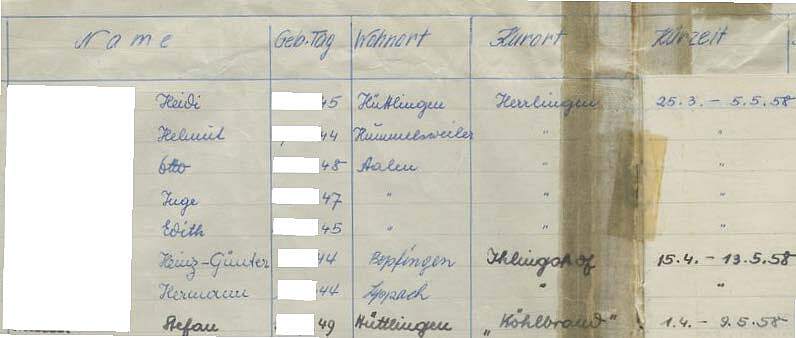 Name Geb.Tag Wohnort Kurort Kurzeit
Heidi 45 Hüttlingen Herrlingen 25.3. – 5.5.58
Helmut 44 Hummelsweiler " "
Otto 48 Aalen " "
Inge 47 " " "
Edith 45 " " "
Heinz-Günter 44 Bopfingen Ihlingshof 15.4. – 13.5.58
Hermann 44 Lippach " "
Stefan 49 Hüttlingen „Köhlbrand" 1.4. – 9.5.58